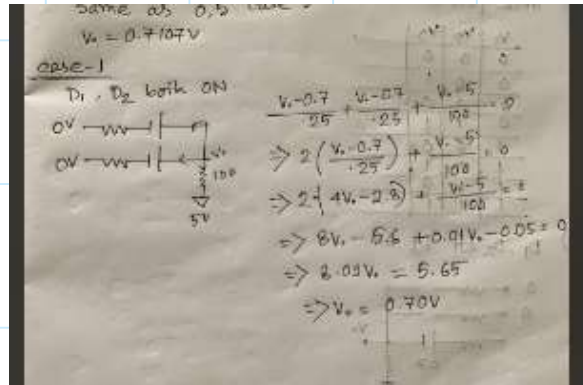 same as 0,5 case
V₀ = 0.7107V
case-1
D₁, D₂ both ON
0V
0V
V₀
100
5V
(V₀-0.7)/.25 + (V₀-0.7)/.25 + (V₀-5)/100 = 0
=> 2((V₀-0.7)/.25) + (V₀-5)/100 = 0
=> 2(4V₀-2.8) + (V₀-5)/100 = 0
=> 8V₀ - 5.6 + 0.01V₀ - 0.05 = 0
=> 8.01V₀ = 5.65
=> V₀ = 0.70V